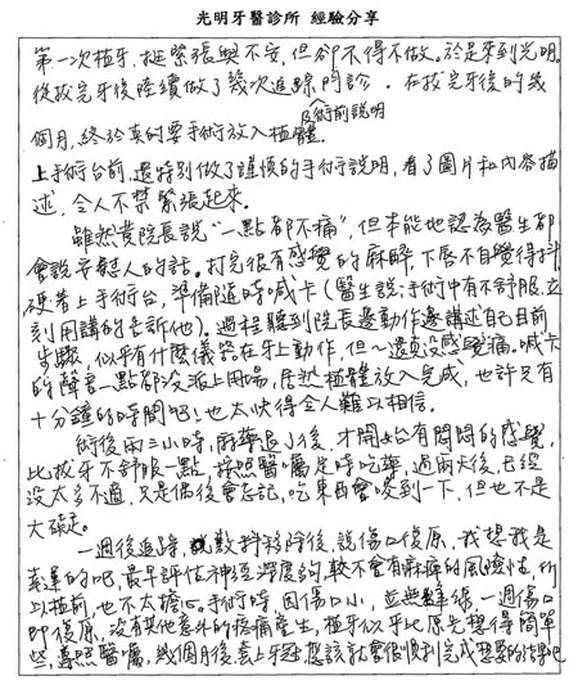 光明牙醫診所 經驗分享
第一次植牙,挺緊張與不安,但卻不得不做。於是來到光明。
從拔完牙後陸續做了幾次追蹤門診。在拔完牙後的幾
及術前說明
個月,終於真的要手術放入植體。
上手術台前,還特別做了謹慎的手術說明,看了圖片和內容描
述,令人不禁緊張起來。
雖然黃院長說"一點都不痛",但本能地認為醫生都
會說安慰人的話。打完很有感覺的麻醉,下唇不自覺得抖,
硬著上手術台,準備隨時喊卡(醫生說:手術中有不舒服,立
刻用講的告訴他)。過程聽到院長邊動作邊講述自己目前
步驟,似乎有什麼儀器在牙上動作,但~還真沒感覺痛。喊卡
的聲音一點都沒派上用場,居然植體放入完成,也許只有
十分鐘的時間吧!也太快得令人難以相信。
術後兩三小時,麻藥退了後,才開始有悶悶的感覺,
比拔牙不舒服一點,按照醫囑定時吃藥,過兩天後,已經
沒太多不適,只是偶後會忘記,吃東西會咬到一下,但也不是
大礙。
一週後追蹤,敷料移除後,說傷口復原,我想我是
幸運的吧,最早評估神經深度夠,較不會有麻痺的風險性,所
以植前,也不太擔心。手術時,因傷口小,並無縫線,一週傷口
即復原,沒有其他意外的疼痛產生,植牙似乎比原先想得簡單
些,遵照醫囑,幾個月後,套上牙冠,應該就會很順利完成想要的結果吧